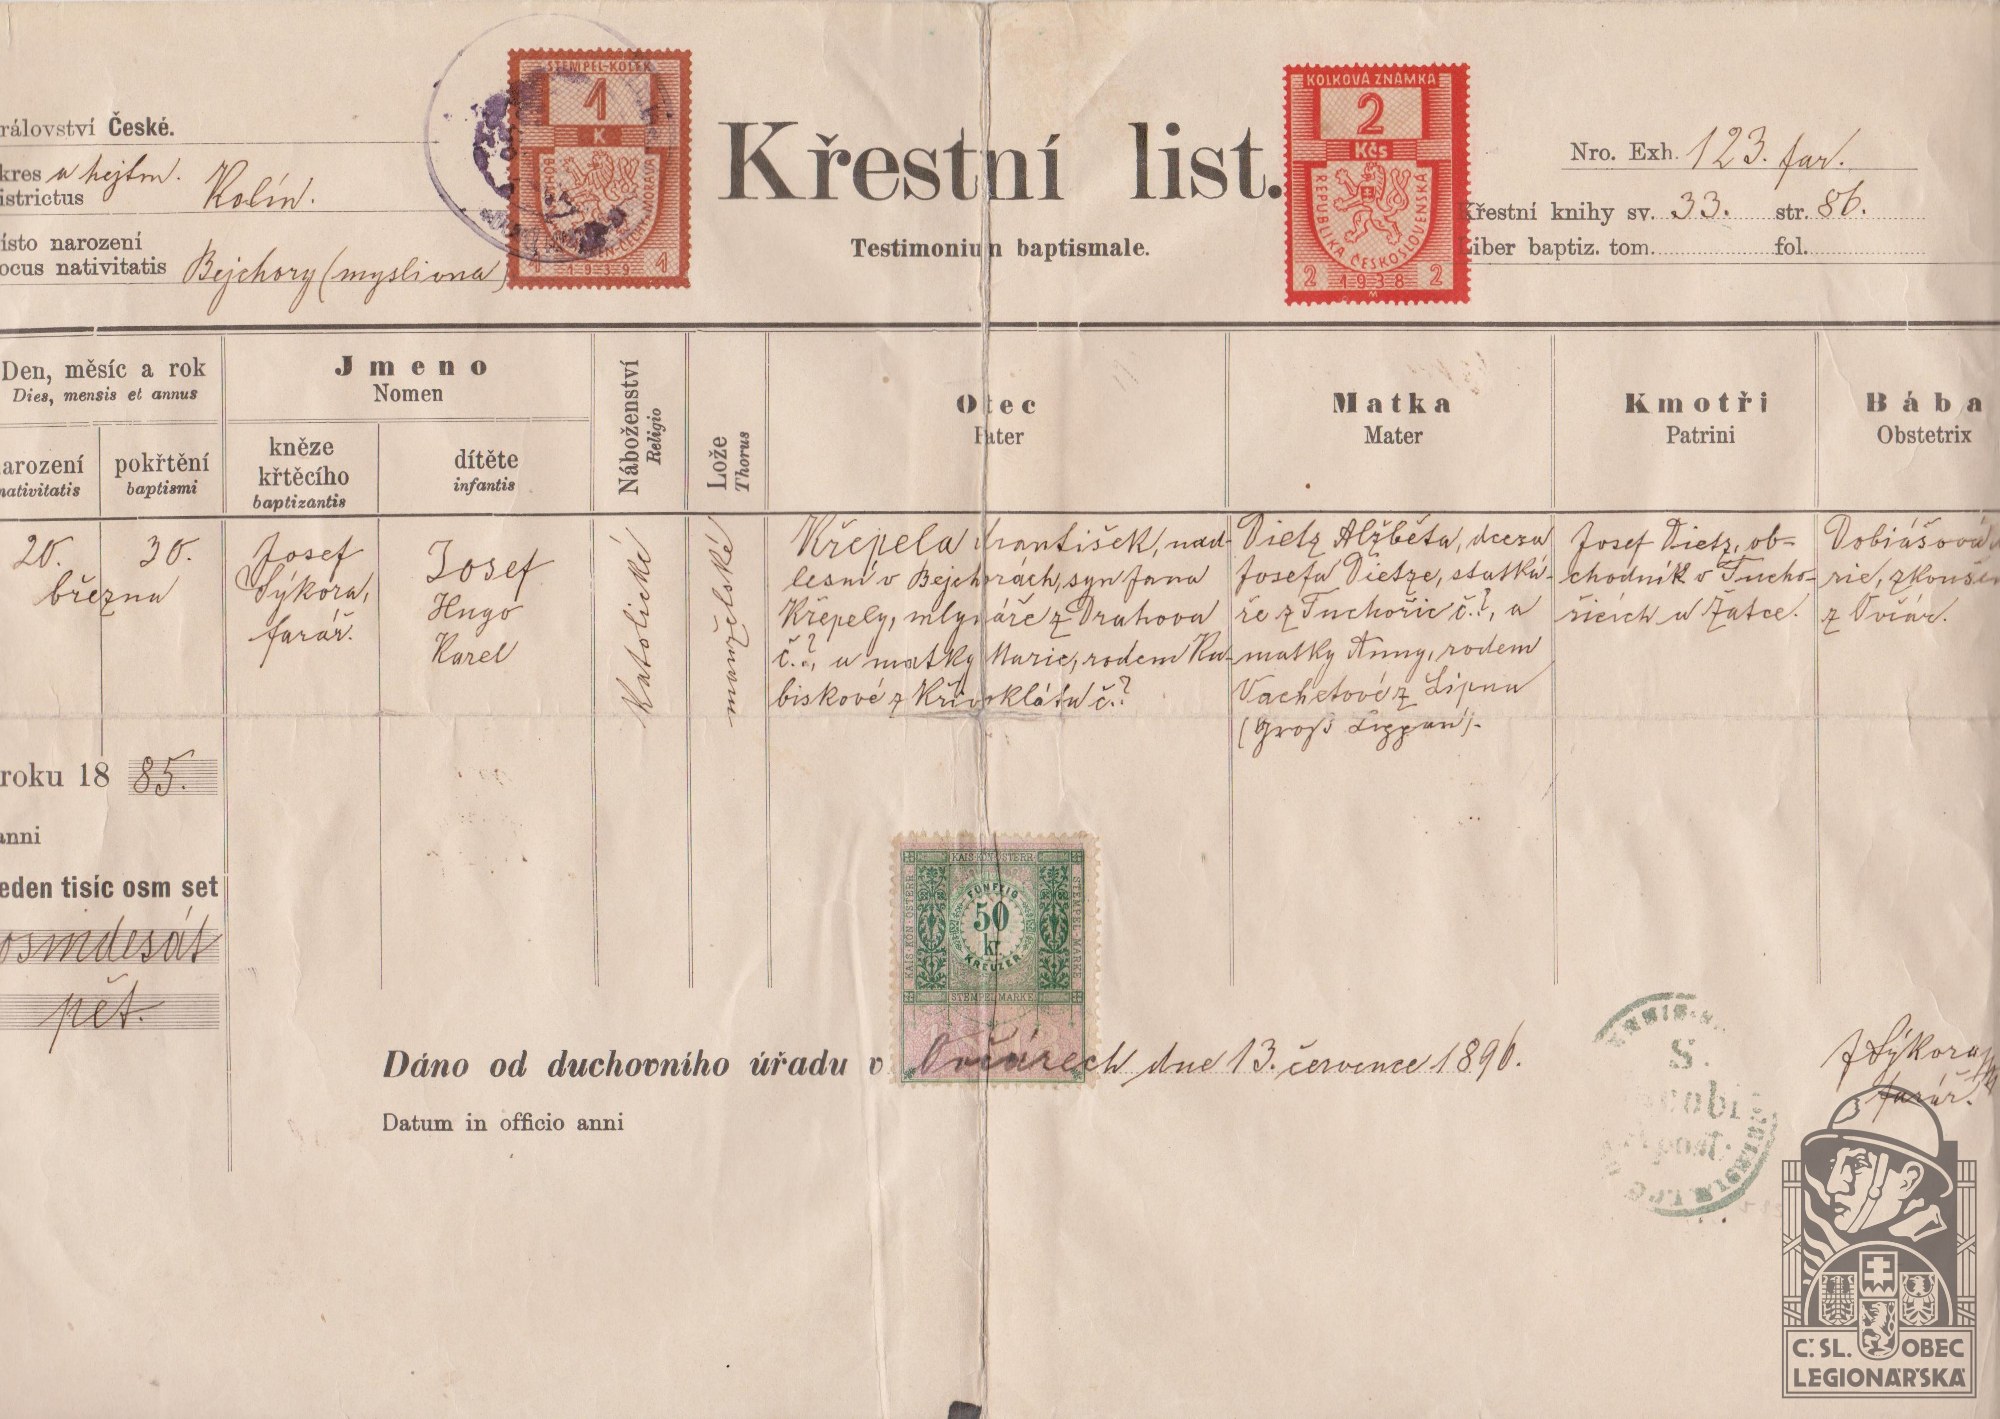 rálovství České.
kres a hejtm. Kolín.
istrictus
ísto narození
ocus nativitatis Bejchory (myslivna)
STEMPEL-KOLEK
1
K
BÖHMEN
ČECHY-MORAVA
1 1939 1
Křestní list.
Testimonium baptismale.
KOLKOVÁ ZNÁMKA
2
Kčs
REPUBLIKA ČESKOSLOVENSKÁ
2 1938 2
Nro. Exh. 123. far.
Křestní knihy sv. 33. str. 86.
Liber baptiz. tom. fol.
Den, měsíc a rok
Dies, mensis et annus
arození
nativitatis
pokřtění
baptismi
Jmeno
Nomen
kněze
křtěcího
baptizantis
dítěte
infantis
Náboženství
Religio
Lože
Thorus
Otec
Pater
Matka
Mater
Kmotři
Patrini
Bába
Obstetrix
20. 30.
března
roku 18 85.
anni
eden tisíc osm set
osmdesát
pět.
Josef
Sýkora,
farář.
Josef
Hugo
Karel
Katolické
manželské
Křepela František, nad-
lesní v Bejchorách, syn Jana
Křepely, mlynáře z Drahova
č.?, a matky Marie, rodem Ku-
biskové z Křivoklátu č.?
Dietz Alžběta, dcera
Josefa Dietze, statká-
ře z Tuchořic č.?, a
matky Anny, rodem
Vachetové z Lipna
(Groß Lippen).
Josef Dietz, ob-
chodník v Tucho-
řicích u Žatce.
Dobiášová
rie, zkouše
z Ovčár.
KAIS. KÖN. ÖSTERR.
KAIS. KÖN. ÖSTERR.
STEMPEL-MARKE
FÜNFZIG
50
kr.
KREUZER
STEMPELMARKE
Dáno od duchovního úřadu v Ovčárech dne 13. července 1896.
Datum in officio anni
S.
J Sýkora
farář.
Č. SL. OBEC
LEGIONÁŘSKÁ